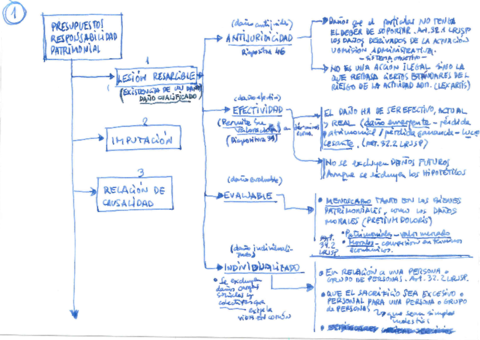 1
PRESUPUESTOS
RESPONSABILIDAD
PATRIMONIAL
1
LESIÓN RESARCIBLE
(EXISTENCIA DE UN DAÑO
DAÑO CUALIFICADO)
2
IMPUTACIÓN
3
RELACIÓN DE
CAUSALIDAD
(daño antijurídico)
ANTIJURIDICIDAD
Diapositiva 46
→ Daños que el particular NO TENGA
EL DEBER DE SOPORTAR. Art. 32.1 LRJSP
LOS DAÑOS DERIVADOS DE LA ACTUACIÓN
U OMISIÓN ADMINISTRATIVA.
→ NO ES UNA ACCIÓN ILEGAL SINO LA
QUE REBASA CIERTOS ESTÁNDARES DEL
RIESGO DE LA ACTIVIDAD ADM. (LEX ARTIS)
(daño efectivo)
EFECTIVIDAD
(Diapositiva 39)
EL DAÑO HA DE SER EFECTIVO, ACTUAL
Y REAL (daño emergente - pérdida
patrimonial / pérdida ganancia - lucro
cesante. (Art. 32.2 LRJSP)
NO SE EXCLUYEN DAÑOS FUTUROS
Aunque se excluyen los HIPOTÉTICOS
(daño evaluable)
EVALUABLE
• MENOSCABO TANTO CON LOS BIENES
PATRIMONIALES, COMO LOS DAÑOS
MORALES (PRETIUM DOLORIS)
Art.
32.2
LRJSP
• Patrimoniales - valor mercado
• Morales - compensación en términos
económicos.
(daño individualizado)
INDIVIDUALIZADO
• Se excluyen
daños
vida en común
• EN RELACIÓN A UNA PERSONA O
GRUPO DE PERSONAS. Art. 32.2 LRJSP.
• QUE EL SACRIFICIO SEA EXCESIVO O
PERSONAL PARA UNA PERSONA O GRUPO
DE PERSONAS